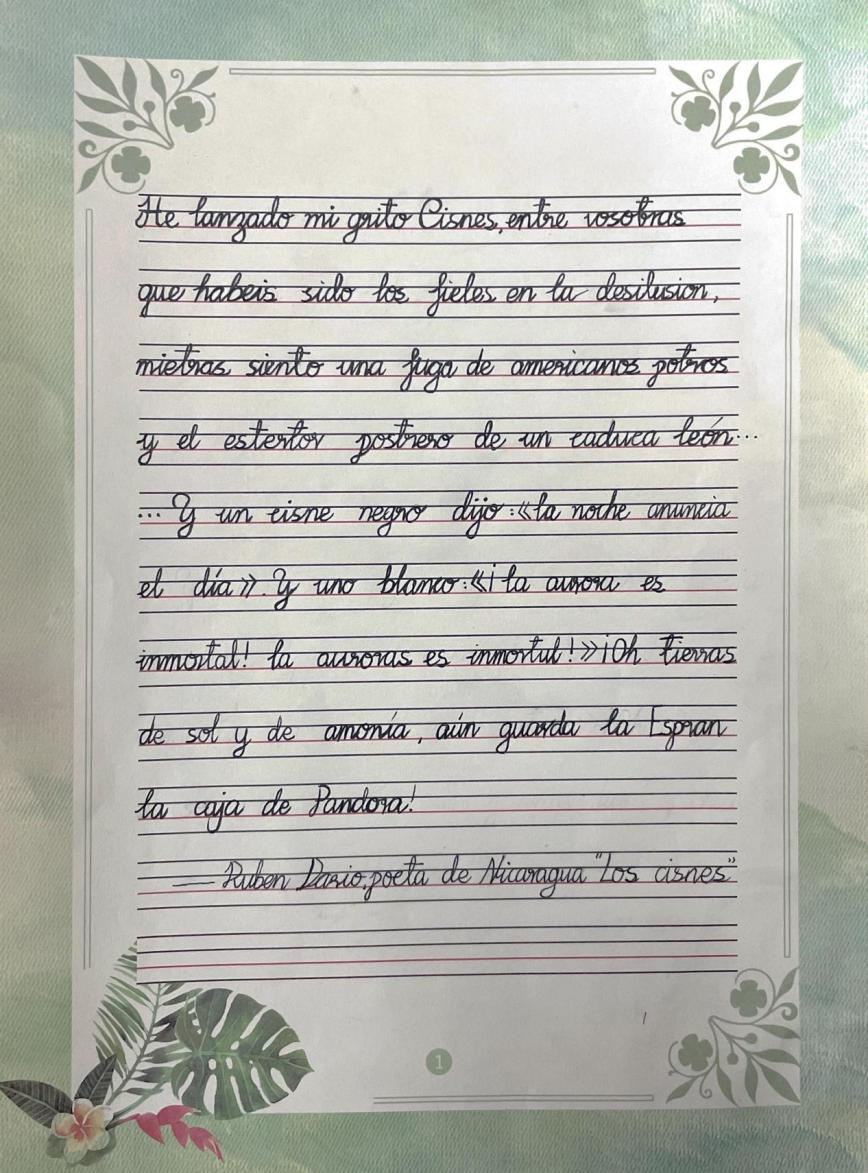 He lanzado mi grito Cisnes, entre vosotras
que habeis sido los fieles en la desilusion,
mietras siento una fuga de americanos potros
y el estertor postrero de un caduca león...
... Y un cisne negro dijo: «la noche anuncia
el día». Y uno blanco: «¡la aurora es
inmortal! la auroras es inmortal!» ¡Oh tierras
de sol y de amonía, aún guarda la Espran
la caja de Pandora!
—— Ruben Dario, poeta de Nicaragua "Los cisnes"
1